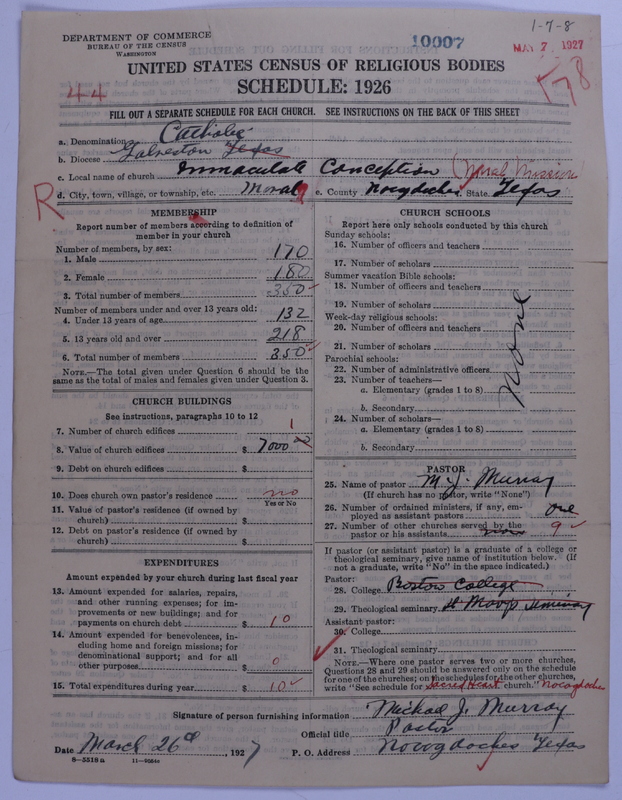 1-7-8
DEPARTMENT OF COMMERCE
BUREAU OF THE CENSUS
WASHINGTON
10007
MAY 7 1927
UNITED STATES CENSUS OF RELIGIOUS BODIES
44
SCHEDULE: 1926
78
FILL OUT A SEPARATE SCHEDULE FOR EACH CHURCH. SEE INSTRUCTIONS ON THE BACK OF THIS SHEET
a. Denomination Catholic
b. Diocese Galveston Texas
c. Local name of church Immaculate Conception (Moral Mission)
d. City, town, village, or township, etc. Moral e. County Nacogdoches f. State Texas
R
MEMBERSHIP
Report number of members according to definition of
member in your church
Number of members, by sex:
1. Male 170
2. Female 180
3. Total number of members 350
Number of members under and over 13 years old:
4. Under 13 years of age 132
5. 13 years old and over 218
6. Total number of members 350
NOTE.—The total given under Question 6 should be
same as the total of males and females given under Question 3.
CHURCH BUILDINGS
See instructions, paragraphs 10 to 12
7. Number of church edifices 1
8. Value of church edifices $ 7000 00
9. Debt on church edifices $
10. Does church own pastor's residence no
Yes or No
11. Value of pastor's residence (if owned by
church) $
12. Debt on pastor's residence (if owned by
church) $
EXPENDITURES
Amount expended by your church during last fiscal year
13. Amount expended for salaries, repairs,
and other running expenses; for im-
provements or new buildings; and for
payments on church debt $ 10
14. Amount expended for benevolences, in-
cluding home and foreign missions; for
denominational support; and for all
other purposes $ 0
15. Total expenditures during year $ 10
CHURCH SCHOOLS
Report here only schools conducted by this church
Sunday schools:
16. Number of officers and teachers
17. Number of scholars
Summer vacation Bible schools:
18. Number of officers and teachers
19. Number of scholars
Week-day religious schools:
20. Number of officers and teachers
21. Number of scholars
Parochial schools:
22. Number of administrative officers
23. Number of teachers—
a. Elementary (grades 1 to 8)
b. Secondary
24. Number of scholars—
a. Elementary (grades 1 to 8)
b. Secondary
None
PASTOR
25. Name of pastor M. J. Murray
(If church has no pastor, write "None")
26. Number of ordained ministers, if any, em-
ployed as assistant pastors one
27. Number of other churches served by the
pastor or his assistants 9
If pastor (or assistant pastor) is a graduate of a college or
theological seminary, give name of institution below. (If
not a graduate, write "No" in the space indicated.)
Pastor:
28. College Boston College
29. Theological seminary St Mary's Seminary
Assistant pastor:
30. College
31. Theological seminary
NOTE.—Where one pastor serves two or more churches,
Questions 28 and 29 should be answered only on the schedule
for one of the churches; on the schedules for the other churches,
write "See schedule for Sacred Heart church." Nacogdoches
Signature of person furnishing information Michael J. Murray
Official title Pastor
Date March 26th, 1927 P. O. Address Nacogdoches Texas
8—5518 a